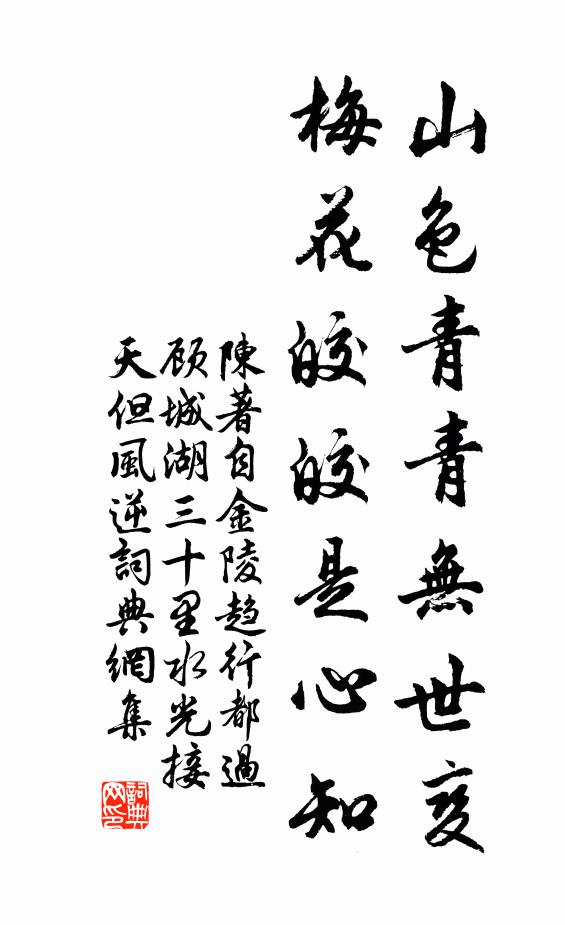 山色青青無世变
梅花皎皎是心知
陳著自金陵趋行都過
顾城湖三十里水光接
天但風逆詞典網集
詞典
网印